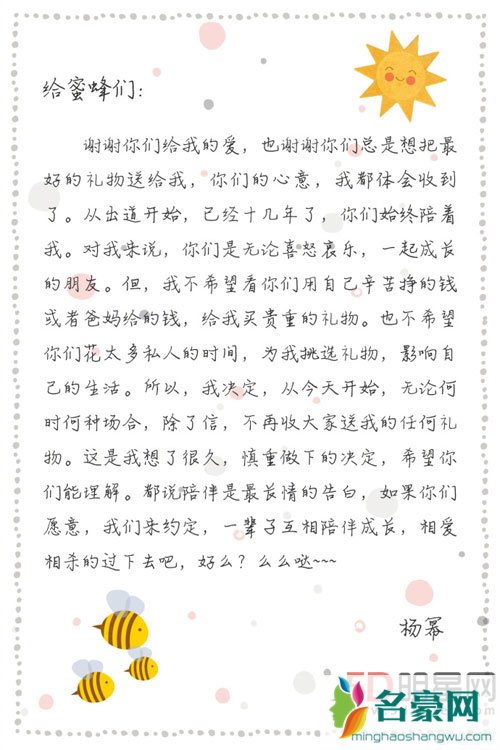 给蜜蜂们:
谢谢你们给我的爱，也谢谢你们总是想把最
好的礼物送给我，你们的心意，我都体会收到
了。从出道开始，已经十几年了，你们始终陪着
我。对我来说，你们是无论喜怒哀乐，一起成长
的朋友。但，我不希望看你们用自己辛苦挣的钱
或者爸妈给的钱，给我买贵重的礼物。也不希望
你们花太多私人的时间，为我挑选礼物，影响自
己的生活。所以，我决定，从今天开始，无论何
时何种场合，除了信，不再收大家送我的任何礼
物。这是我想了很久，慎重做下的决定，希望你
们能理解。都说陪伴是最长情的告白，如果你们
愿意，我们来约定，一辈子互相陪伴成长，相爱
相杀的过下去吧，好么？么么哒~~~
杨幂
明星网
名豪网
minghaoshangwu.com